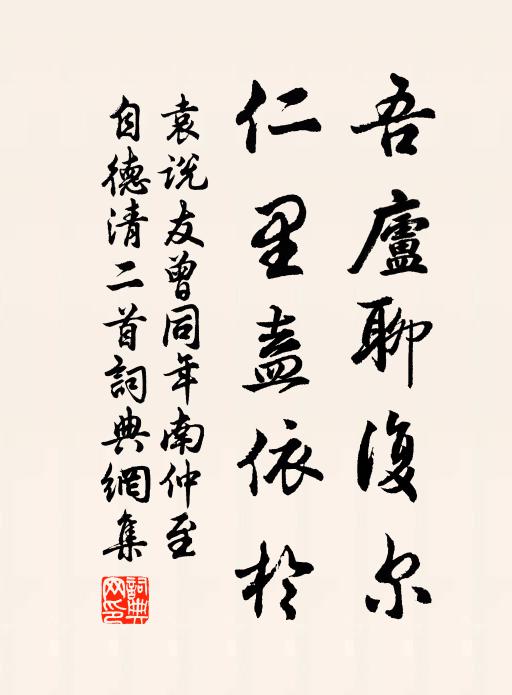 吾廬聊復尔
仁里盍依於
袁说友曾同年南仲至
自德清二首詞典網集
詞典网印